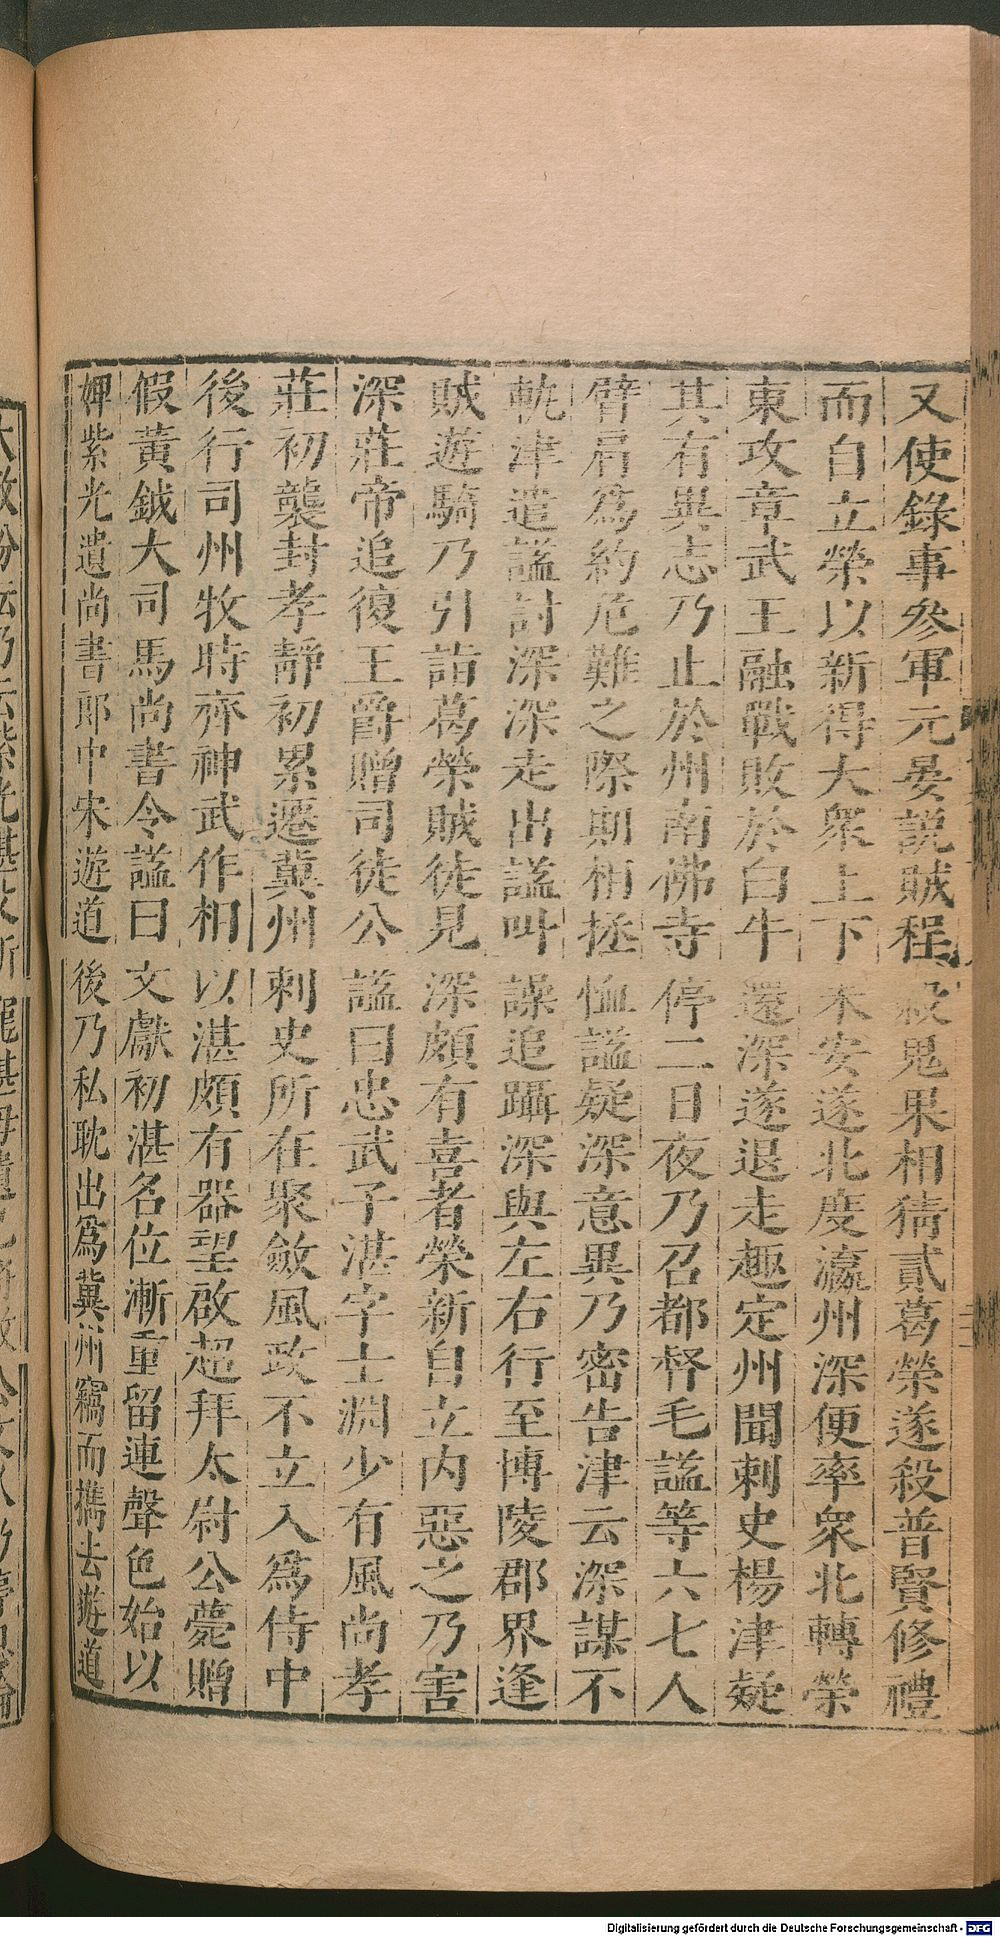 又使錄事參軍元晏説賊程殺鬼果相猜貳葛榮遂殺普賢修禮
而自立榮以新得大衆上下未安遂北度瀛州深便率衆北轉榮
東攻章武王融戰敗於白牛還深遂退走趣定州聞刺史楊津疑
其有異志乃止於州南佛寺停二日夜乃召都督毛謐等六七人
臂肩爲約危難之際期相拯恤謐疑深意異乃密告津云深謀不
軌津遣謐討深深走出謐叫譟追躡深與左右行至博陵郡界逢
賊遊騎乃引詣葛榮賊徒見深頗有喜者榮新自立内惡之乃害
深莊帝追復王爵贈司徒公謚曰忠武子湛字士淵少有風尚孝
莊初襲封孝靜初累遷冀州刺史所在聚斂風政不立入爲侍中
後行司州牧時齊神武作相以湛頗有器望啟超拜太尉公薨贈
假黃鉞大司馬尚書令謚曰文獻初湛名位漸重留連聲色始以
婢紫光遺尚書郎中宋遊道後乃私耽出爲冀州竊而攜去遊道
大致紛紜乃云紫光湛父所寵湛母遺己將致公文
Digitalisierung gefördert durch die Deutsche Forschungsgemeinschaft - DFG